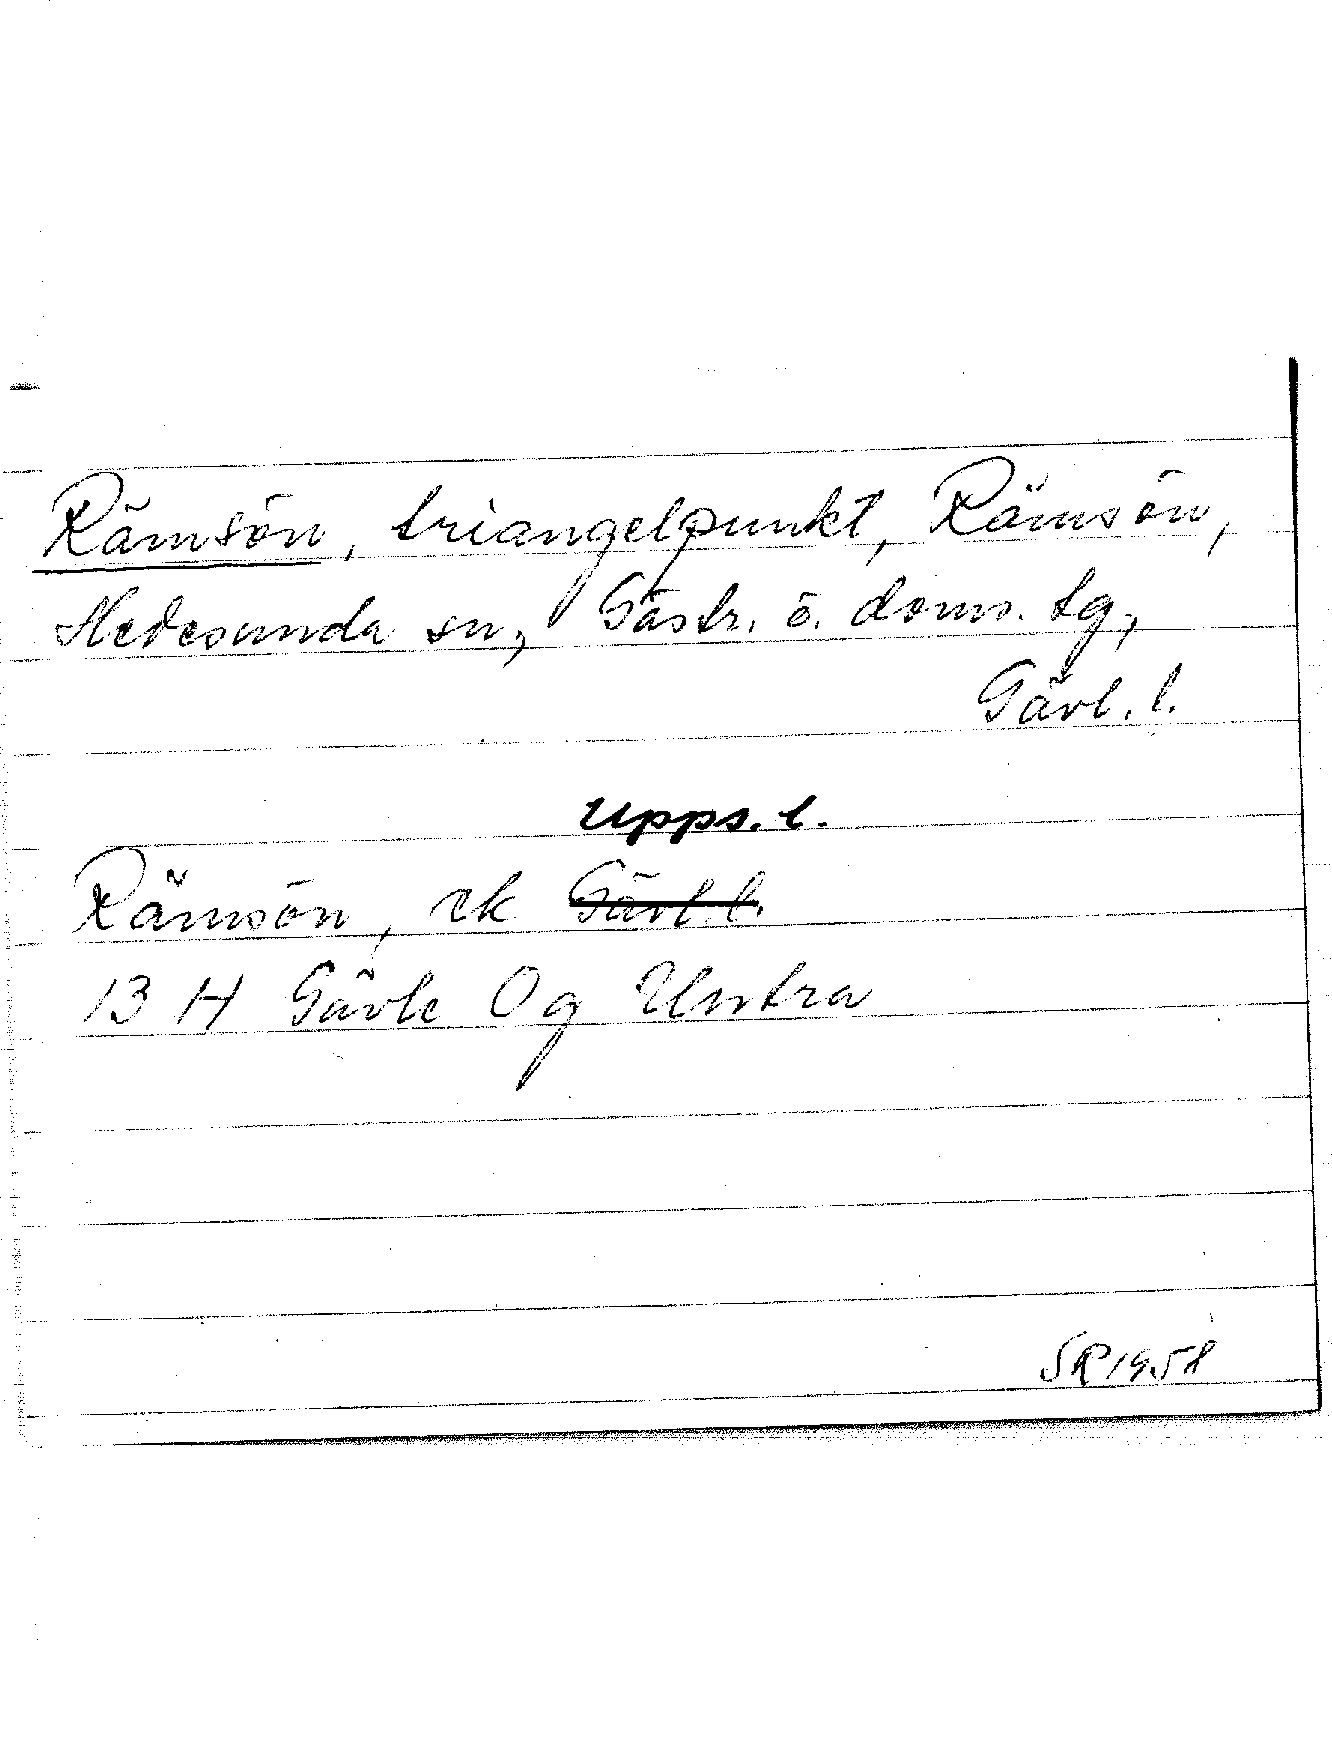 Rämsön, triangelpunkt, Rämsön,
Hedesunda sn, Gästr. ö. doms. tg,
Gävl. l.
Upps. l.
Rämsön, ek Gävl. l.
13 H Gävle Og Untra
SR 1958